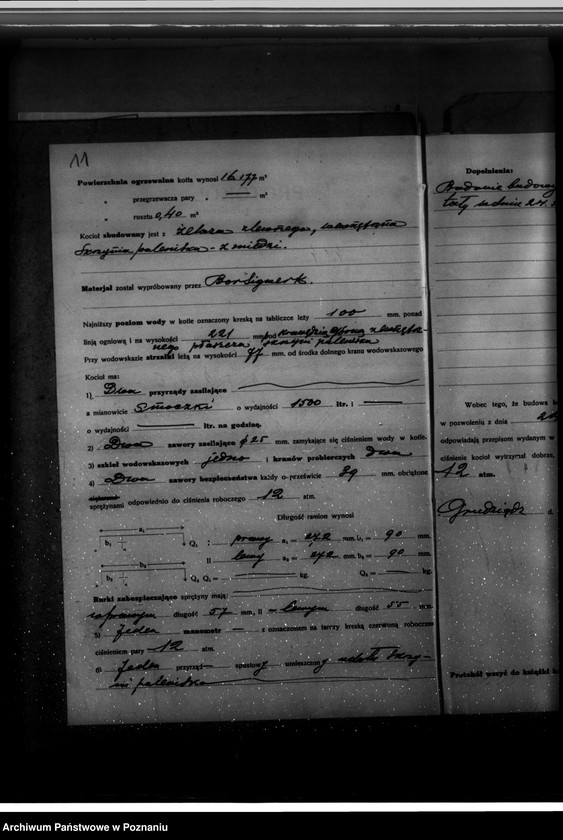 11
Powierzchnia ogrzewalna kotła wynosi 16.177 m²
„ przegrzewacza pary „ — m²
„ rusztu 0,40 m²
Kocioł zbudowany jest z żelaza zlewnego, wewnętrzna
Skrzynia paleniska - z miedzi.
Materjał został wypróbowany przez Borsigwerk.
Najniższy poziom wody w kotle oznaczony kreską na tabliczce leży 100 mm. ponad
linją ogniową i na wysokości 221 mm pod
nego płaszcza skrzyni paleniska
Przy wodowskazie strzałki leżą na wysokości 77 mm. od środka dolnego kranu wodowskazowego
Kocioł ma:
1) Dwa przyrządy zasilające
a mianowicie Smoczki o wydajności 1500 ltr. i —
o wydajności — ltr. na godzinę.
2) Dwa zawory zasilające ф 25 mm. zamykające się ciśnieniem wody w kotle.
3) szkieł wodowskazowych jedno i kranów probierczych dwa
4) Dwa zawory bezpieczeństwa każdy o prześwicie 29 mm. obciążone
sprężynami odpowiednio do ciśnienia roboczego 12 atm.
Długość ramion wynosi
a₁
b₁ Q₁ I prawy a₁ = 272 mm. b₁ = 90 mm.
II lewy a₂ = 272 mm. b₂ = 90 mm.
b₂ Q₂ Q₁ = — kg. Q₂ = — kg.
Rurki zabezpieczające sprężyny mają:
w prawym długość 57 mm, II = lewym długość 55 mm.
5) Jeden manometr — z oznaczoną na tarczy kreską czerwoną robocze
ciśnieniem pary 12 atm.
6) Jeden przyrząd — spustowy umieszczony u dołu skrzy-
ni paleniska
Dopełnienia:
Badanie budowy
Wobec tego, że budowa k
w pozwoleniu z dnia
odpowiadają przepisom wydanym w
ciśnienie kocioł wytrzymał dobrze,
12 atm.
Grudziądz d.
Protokół wszyć do książki k
Archiwum Państwowe w Poznaniu